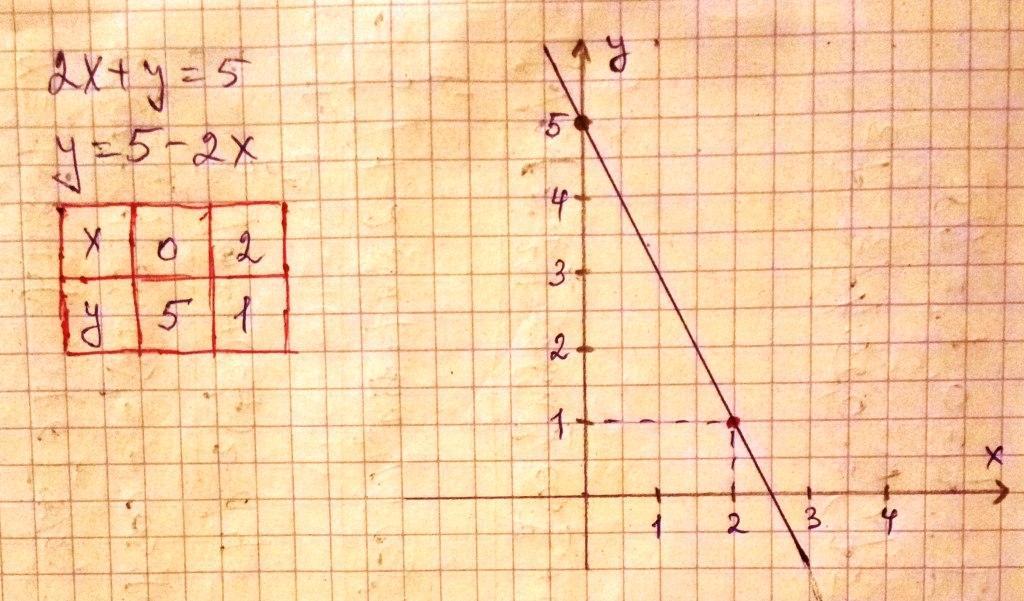 2x+y=5
y=5-2x
x 0 2
y 5 1
y
5
4
3
2
1
x
1 2 3 4